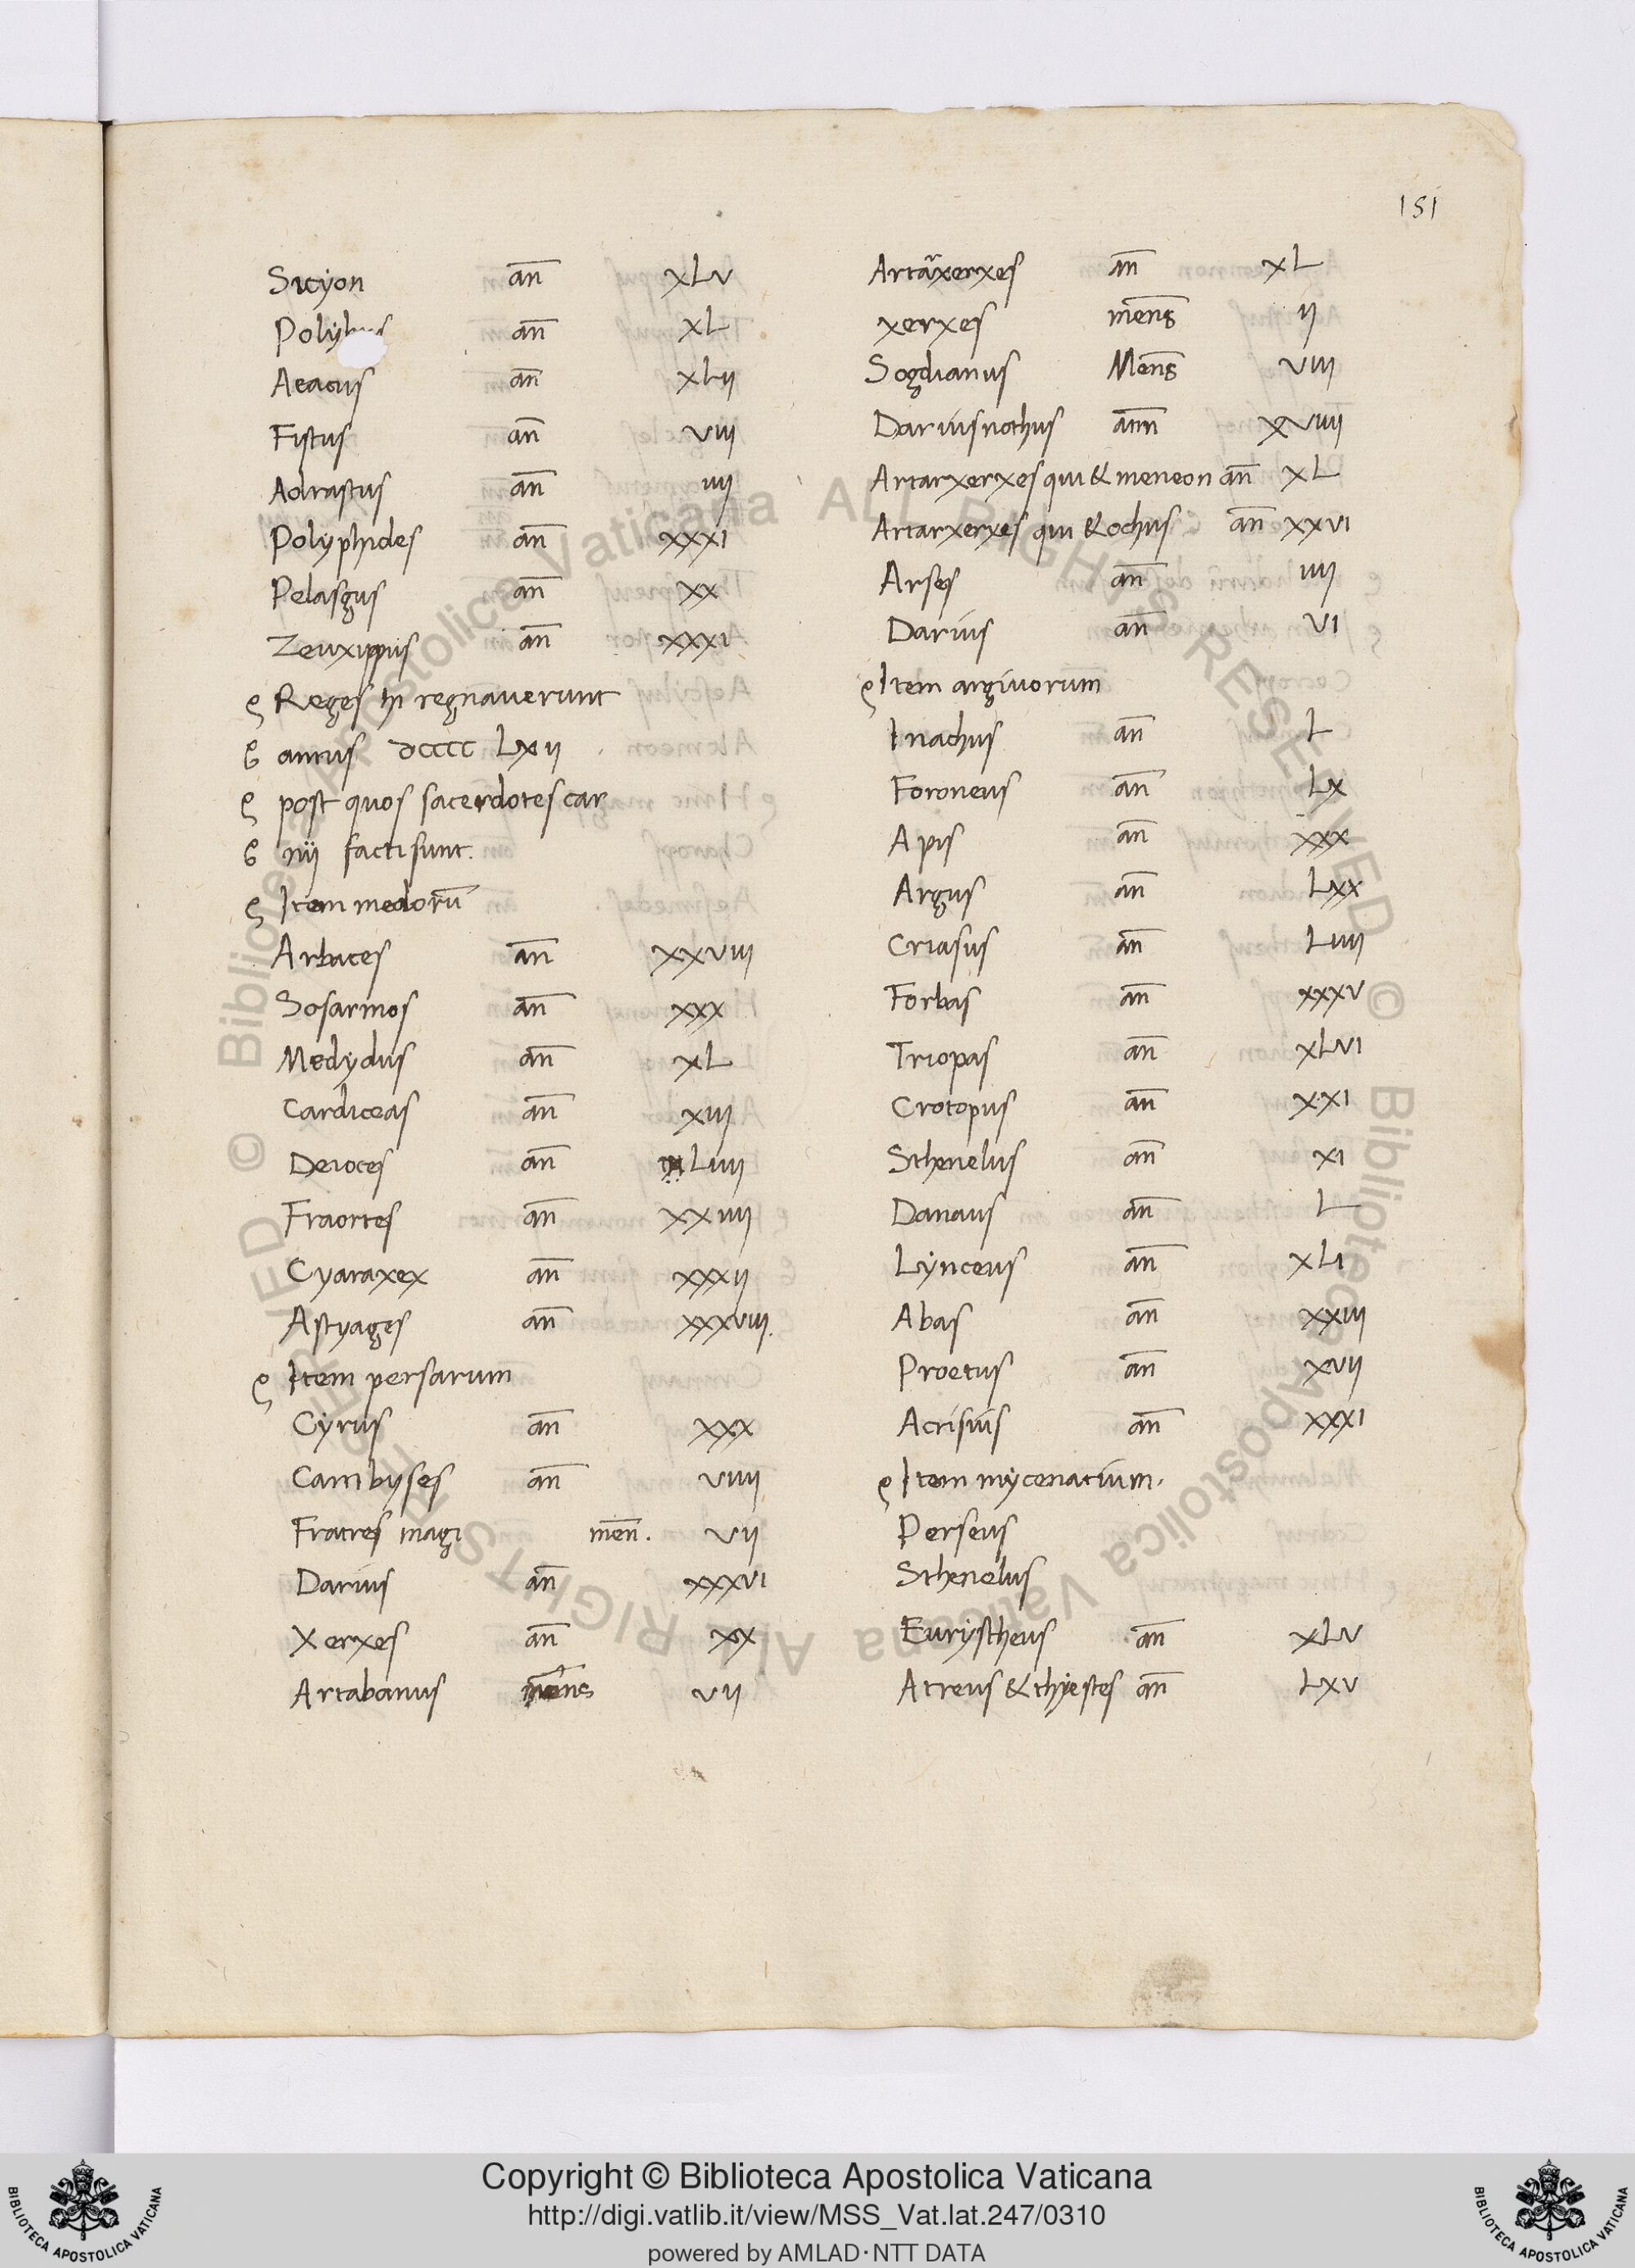 151
Sicyon an̅ xLv
Polybus an̅ xL
Aeacus an̅ xLii
Fistus an̅ viii
Adrastus an̅ iiii
Polyphides an̅ xxxi
Pelasgus an̅ xx
Zeuxippus an̅ xxxi
Reges hi regnauerunt
annis dcccc Lxii
post quos sacerdotes car
nij facti sunt.
Item medorū
Arbaces an̅ xxviii
Sosarmos an̅ xxx
Medydus an̅ xL
Cardiceas an̅ xiii
Deioces an̅ Liiii
Fraortes an̅ xxiiii
Cyaraxex an̅ xxxii
Astyages an̅ xxxviii.
Item persarum
Cyrus an̅ xxx
Cambyses an̅ viiii
Fratres magi men̅. vii
Darius an̅ xxxvi
Xerxes an̅ xx
Artabanus mens vii
Artarxerxes an̅ xL
xerxes men̅s ii
Sogdianus Men̅s viii
Darius nothus ann̅ xviiii
Artarxerxes qui & meneon an̅ xL
Artarxerxes qui & ochus an̅ xxvi
Arses an̅ iiii
Darius an̅ vi
Item argiuorum
Inachus an̅ L
Foroneus an̅ Lx
Apis an̅ xxx
Argus an̅ Lxx
Criasus an̅ Liiii
Forbas an̅ xxxv
Triopas an̅ xLvi
Crotopus an̅ xxi
Sthenelus an̅ xi
Danaus an̅ L
Lynceus an̅ xLi
Abas an̅ xxiii
Proetus an̅ xvii
Acrisius an̅ xxxi
Item mycenarium.
Perseus
Sthenelus
Eurystheus an̅ xLv
Atreus & thyestes an̅ Lxv
© Biblioteca Apostolica Vaticana ALL RIGHTS RESERVED © Biblioteca Apostolica Vaticana ALL RIGHTS RESERVED
Copyright © Biblioteca Apostolica Vaticana
http://digi.vatlib.it/view/MSS_Vat.lat.247/0310
powered by AMLAD·NTT DATA
BIBLIOTECA APOSTOLICA VATICANA
BIBLIOTECA APOSTOLICA VATICANA